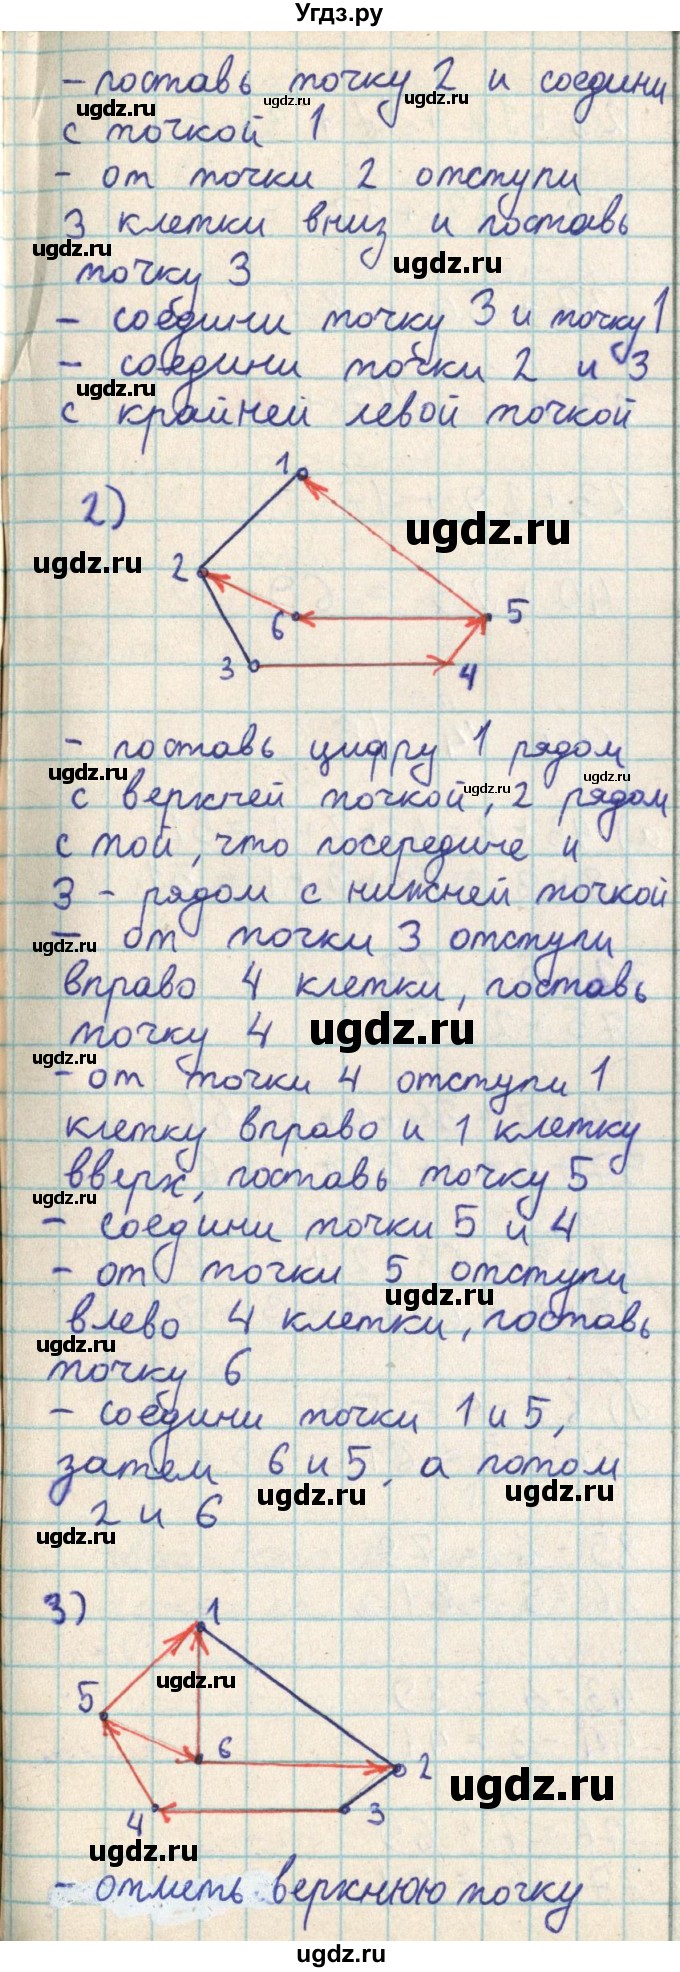 Угдз.ру
- поставь точку 2 и соедини
ugdz.ru ugdz.ru ugdz.ru
с точкой 1
- от точки 2 отступи
3 клетки вниз и поставь
ugdz.ru ugdz.ru
точку 3
- соедини точку 3 и точку 1
- соедини точки 2 и 3
ugdz.ru
с крайней левой точкой
2)
1
ugdz.ru
ugdz.ru
2
6
5
3
4
- поставь цифру 1 рядом
ugdz.ru ugdz.ru ugdz.ru
с верхней точкой, 2 рядом
с той, что посередине и
3 - рядом с нижней точкой
ugdz.ru
- от точки 3 отступи
вправо 4 клетки, поставь
точку 4
ugdz.ru
ugdz.ru
- от точки 4 отступи 1
клетку вправо и 1 клетку
вверх, поставь точку 5
ugdz.ru
- соедини точки 5 и 4
- от точки 5 отступи
ugdz.ru
влево 4 клетки, поставь
ugdz.ru
точку 6
- соедини точки 1 и 5,
затем 6 и 5, а потом
ugdz.ru ugdz.ru
2 и 6
ugdz.ru
3)
1
ugdz.ru
5
6
2
ugdz.ru
4
3
ugdz.ru
- отметь верхнюю точку
ugdz.ru